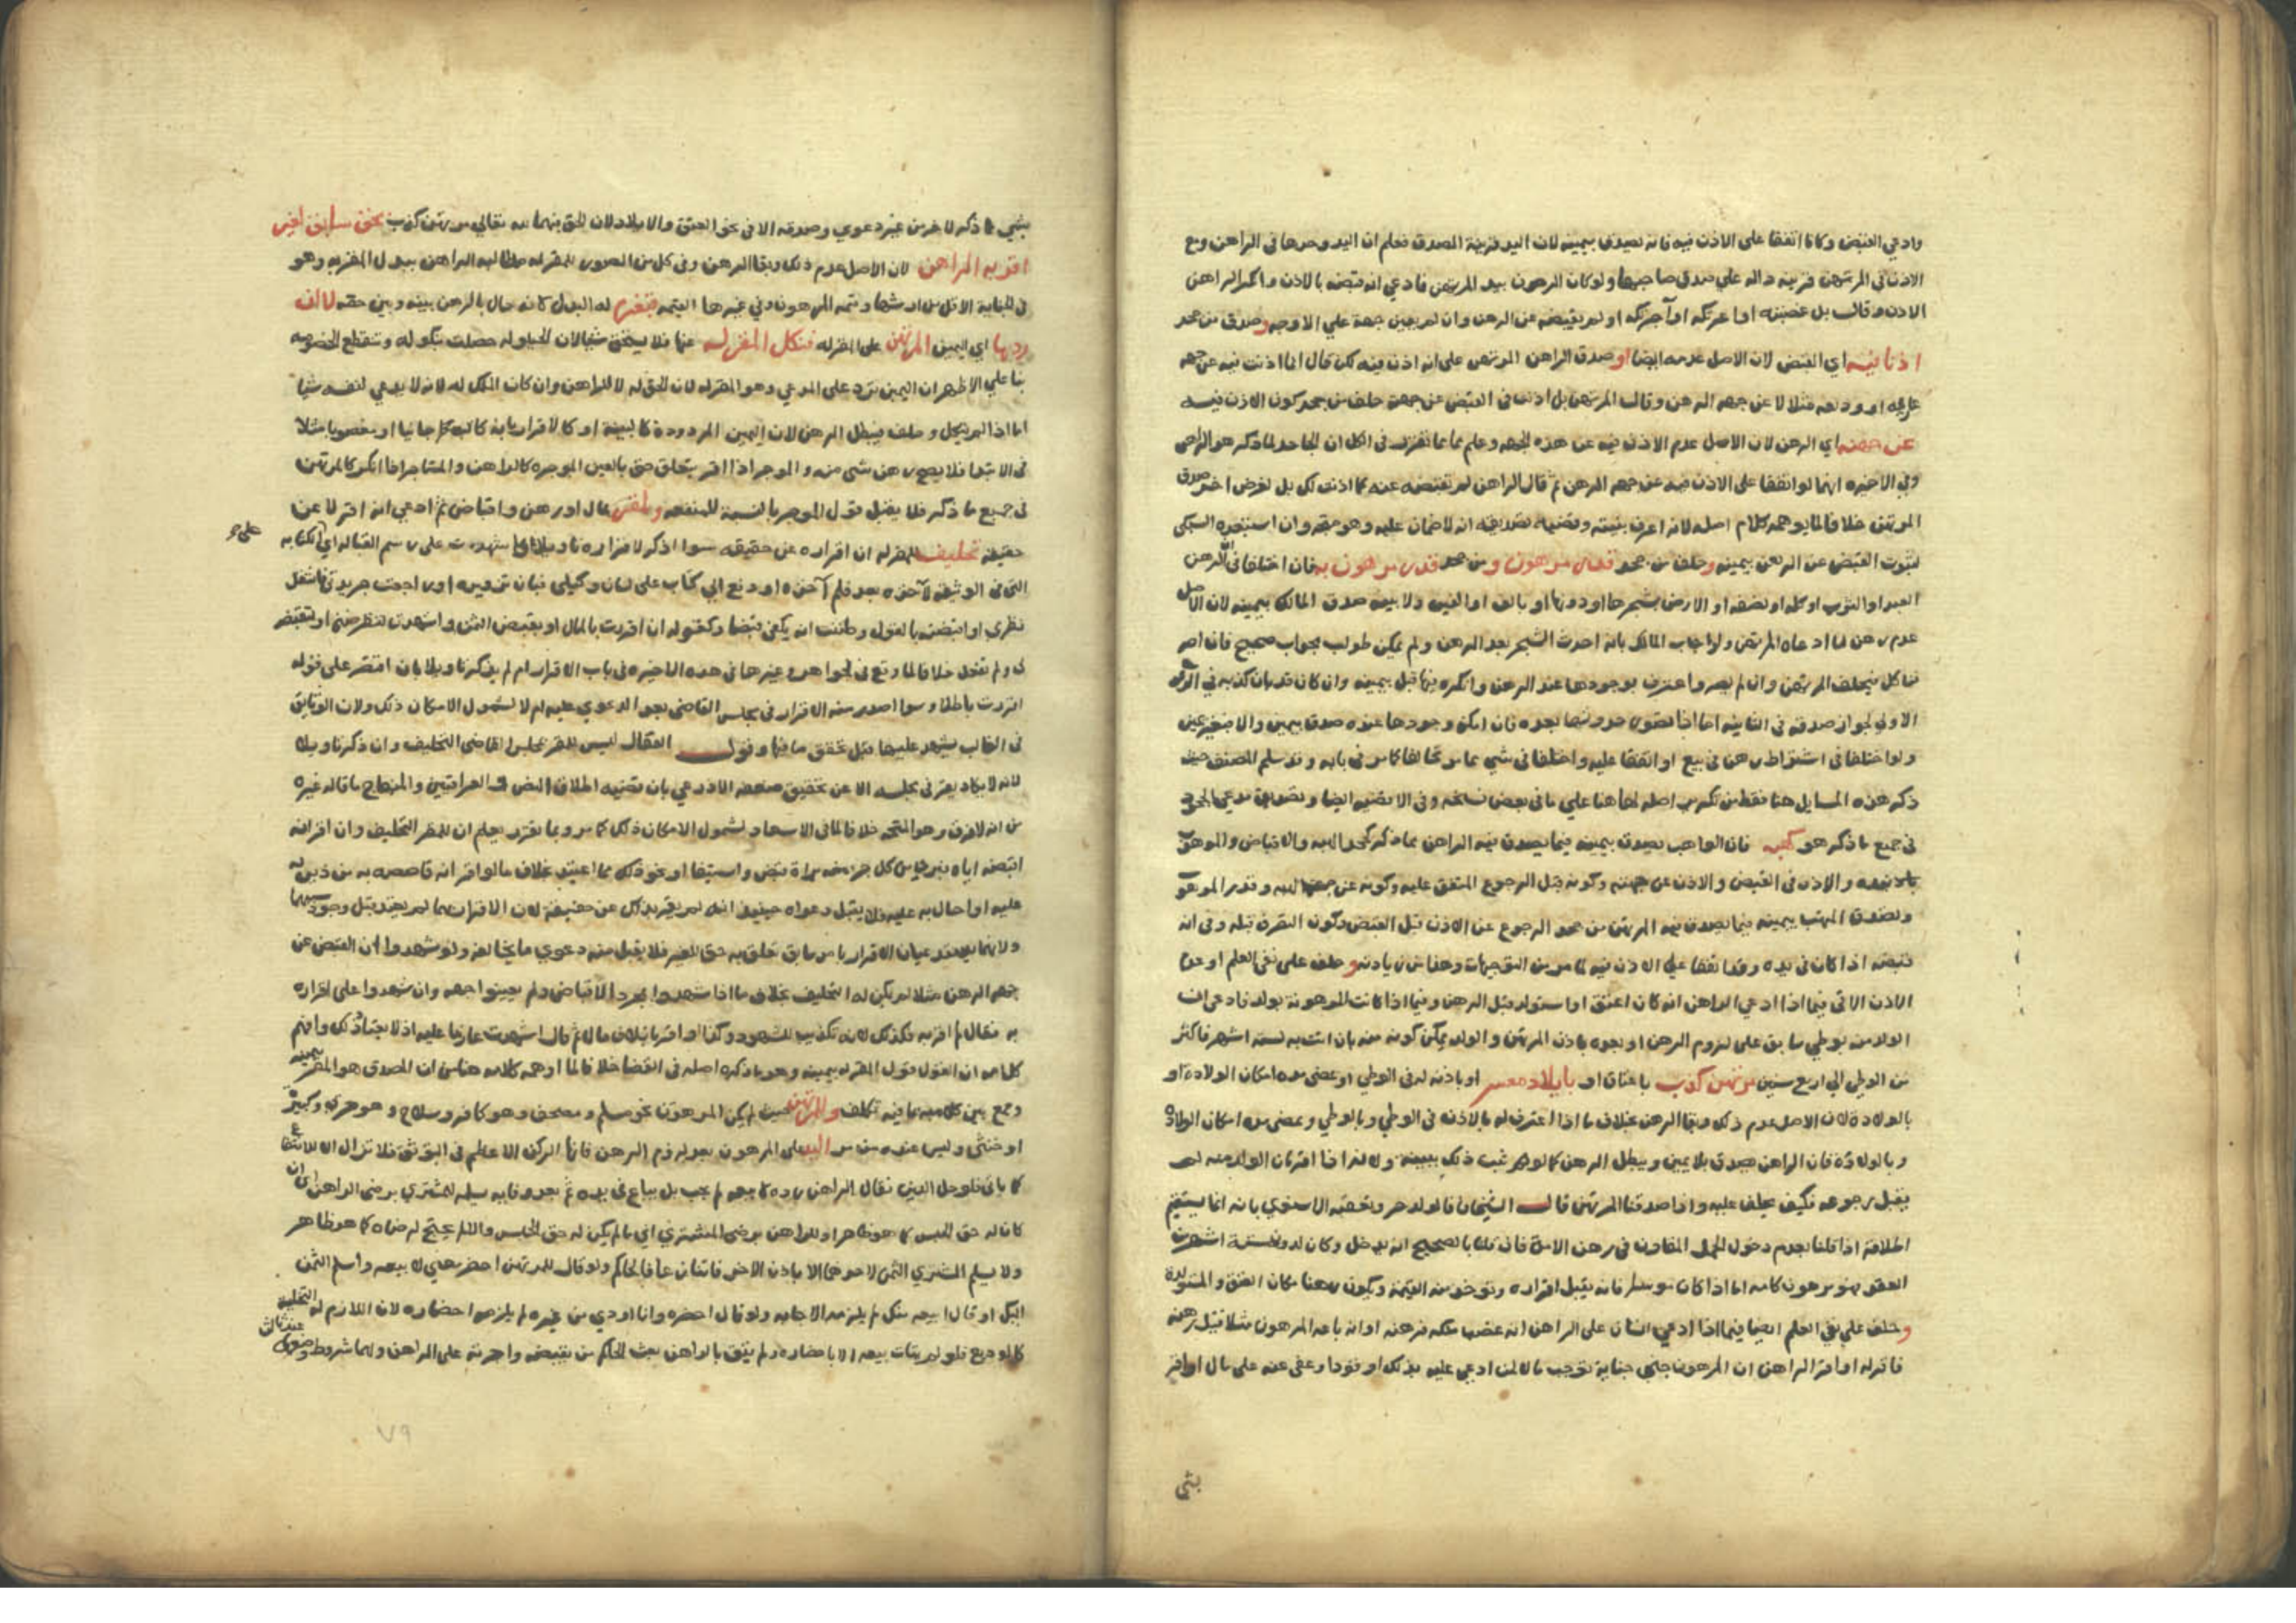 وادعي القبض وكانا اتفقا على الاذن فيه فانه يصدق بيمينه لان اليد قرينة المصدق فعلم ان اليد وحدها في الراهن ومع
الاذن في المرتهن قرينه داله على صدق صاحبها ولو كان الرهون بيد المرتهن فادعي انه قبضه بالاذن وانكر الراهن
الاذن وقال بل غصبته او اعرتكه او آجرتكه او لم يقبضه عن الرهن وان لم يعين جهة علي الاوجه وصدق من جحد
اذنا فيه اي القبض لان الاصل عدمه ايضا او صدق الراهن المرتهن على انه اذن فيه لكن قال انما اذنت فيه عن جهه
عاريه او وديعه مثلا لا عن جهه الرهن وقال المرتهن بل اذنت في القبض عن جهته حلف من جحد كون الاذن فيه
عن جهته اي الرهن لان الاصل عدم الاذن فيه عن هذه الجهه وعلم مما تقرر في الكل ان الجاحد لما ذكر هو الراهن
وفي الاخيره انهما لو اتفقا على الاذن فيه عن جهه الرهن ثم قال الراهن لم تقبضه عنه كما اذنت لك بل لغرض اخر صدق
المرتهن خلافا لما يوهمه كلام اصله لانه اعرف بنيته وقضيه تصديقه انه لا ضمان عليه وهو متجه وان استبعده السبكي
لثبوت القبض عن الرهن بيمينه وحلف من جحد قدر مرهون ومن جحد قدر مرهون به فان اختلفا في الرهن
العبد او الثوب او كله او نصفه او الارض بشجرها او دونها او بالف او الفين ولا بينه صدق المالك بيمينه لان الاصل
عدم رهن ما ادعاه المرتهن ولو اجاب المالك بانه احدث الشجر بعد الرهن ولم يمكن طولب بجواب صحيح فان اصر
فناكل فيحلف المرتهن وان لم يصر واعترف بوجودها عند الرهن وانكره فيها قبل بيمينه وان كان قد بان كذبه في
الاولى لجواز صدقه في الثانيه اما اذا تصور حدوثها بعده فان امكن وجودها عنده صدق بيمين والا فبغير يمين
ولو اختلفا في اشتراط رهن في بيع او اتفقا عليه واختلفا في شي مما مر تحالفا كما مر في بابه وقد سلم المصنف حيث
ذكر هذه المسايل هنا فقط من تكرير اصله لها هنا علي ما في بعض نسخه وفي الاقضيه ايضا وتصديق مدعي الجحود
في جميع ما ذكر هو كهبه فان الواهب يصدق بيمينه فيما يصدق فيه الراهن مما ذكر كجحد الهبه والاقباض والموهوب
والاذن في القبض والاذن عن جهته وكونه قبل الرجوع المتفق عليه وكونه عن جهه الهبه وقدر الموهوب
ويصدق المتهب بيمينه فيما يصدق فيه المرتهن من جحد الرجوع عن الاذن قبل القبض وكون التصرف قبله وفي انه
قبضه اذا كان في يده وقد اتفقا على الاذن فيه لما مر من التوجيهات وهنا من زيادته وحلف على نفي العلم او عدم
الاذن الاتي فيما اذا ادعي الراهن انه كان اعتق او استولد قبل الرهن وفيما اذا كانت المرهونة بولد فادعى ان
الولد منه بوطي سابق على لزوم الرهن او بعده باذن المرتهن والولد يمكن كونه منه بان اتت به لستة اشهر فاكثر
من الوطي الي اربع سنين مرتهن كذب باعتاق او بايلاد معسر او باذنه له في الوطي او بمضي مدة امكان الولادة او
بالولادة لان الاصل عدم ذلك وبقا الرهن بخلاف ما اذا اعترف له بالاذن في الوطي وبالوطي وبمضي مدة امكان الولادة
وبالولادة فان الراهن يصدق بلا يمين ويبطل الرهن كما لو ثبت ذلك ببينه ولانه اذا اقر بان الولد منه لم
يقبل رجوعه فكيف يحلف عليه واذا صدقنا المرتهن قال الشيخان فالولد حر وتعقبه الاسنوي بانه انما يستقيم
اطلاقه اذا قلنا بعدم دخول الحمل المقارن في رهن الامة فان قلنا بالصحيح انه يدخل وكان لدون ستة اشهر من
العقد فهو مرهون كامه اما اذا كان موسرا فانه يقبل اقراره وتوخذ منه القيمة وتكون رهنا مكان العتق والمستولدة
وحلف علي نفي العلم ايضا فيما اذا ادعي انسان على الراهن انه غصبها منه فرهنه او انه باعه المرهون مثلا قبل رهنه
فاقر له او اقر الراهن ان المرهون جنى جناية توجب مالا لمن ادعي عليه بذلك او قودا وعفي عنه على مال او اقر
بشي
بشي مما ذكر لاخر من غير دعوي وصدقه الا في نحو العتق والايلاد لان الحق فيهما لله تعالي مرتهن كذب بحق سابق لغير
اقر به الراهن لان الاصل عدم ذلك وبقا الرهن وفي كل من الصور للمقر له مطالبه الراهن ببدل المقر به وهو
في الجناية الاقل من ارشها وقيمه المرهون وفي غيرها القيمه فيغرم له البدل لانه حال بالرهن بينه وبين حقه لا ان
ردها اي اليمين المرتهن على المقر له فنكل المقر له عنها فلا يستحق شيا لان الحيلوله حصلت بنكوله وتنقطع الخصومه
بنا علي الاظهر ان اليمين ترد على المدعي وهو المقر له لان الحق له لا للراهن وان كان الملك له لانه لا يدعي لنفسه شيا
اما اذا لم ينكل وحلف فيبطل الرهن لان اليمين المردودة كالبينة او كالاقرار بانه كان جانيا او مغصوبا مثلا
في الابتدا فلا يصح رهن شي منه والموجر اذا اقر بتعلق حق بالعين الموجره كالراهن والمستاجر اذا انكر كالمرتهن
في جميع ما ذكر فلا يقبل قول الموجر بالنسبة للمنفعه ولمقر بمال او رهن واقباض ثم ادعي انه اقر لا عن
حقيقة تحليف للمقر له ان اقراره عن حقيقه سوا اذكر لاقراره تاويلا كاشهدت على رسم القباله اي الكتابه
التي في الوثيقه لاخذه بعد فلم آخذه او دفع الي كتاب على لسان وكيلي فبان تزويره او راجعت جريدتي فاشكل
نظري او اقبضته بالقول وظننت انه يكفي قبضا وكقوله ان اقررت بالمال او بقبض الثمن واشهدت لتقرضني او تقبضه
لي ولم تفعل خلافا لما وقع في الجواهر وغيرها في هذه الاخيره في باب الاقرار ام لم يذكر تاويلا بان اقتصر على قوله
اقررت باطلا وسوا اصدر منه الاقرار في مجلس القاضي بعد الدعوي عليه ام لا لشمول الامكان ذلك ولان الوثايق
في الغالب يشهد عليها قبل تحقق ما فيها وقول القفال ليس للمقر بمجلس القاضي التحليف وان ذكر تاويلا
لانه لا يكاد يقر في مجلسه الا عن تحقيق ضعفه الاذرعي بان قضيه اطلاق النص في العراقيين والمنهاج ما قاله غيره
من انه لا فرق وهو المتجه خلافا لما في الاسعاد لشمول الامكان ذلك كما مر وبما تقرر يعلم ان للمقر التحليف وان اقر انه
اقبضه اياه
عليه او احال به عليه فلا يقبل دعواه حينيذ انه لم يقر بذلك عن حقيقة لان الاقرار بهما لم يعتد قبل وجود سببهما
ولانهما يعدعيان الاقرار بامر سابق تعلق به حق الغير فلا يقبل منه دعوي ما يخالفه ولو شهدوا ان القبض عن
جهه الرهن مثلا لم يكن له التحليف بخلاف ما اذا شهدوا بمجرد الاقباض ولم يعينوا جهه وان شهدوا على اقراره
به فقال لم اقر به فكذلك لانه تكذيب للشهود وكذا لو اقر باتلاف مال ثم قال اشهدت عازما عليه اذ لا يعتاد ذلك وافهم
كلامه ان القول قول المقر له بيمينه وهو ما ذكره اصله في القضا خلافا لما اوهمه كلامه هنا من ان المصدق هو المقر بيمينه
وجمع بين كلاميه بما فيه تكلف وللمرتهن حيث لم يكن المرهون نحو مسلم ومصحف وهو كافر وسلاح وهو حربي وكبيرة
او خنثى وليس عنده من مر اليد على المرهون بعد لزوم الرهن فانها الركن الاعظم في التوثق فلا تزال الا للانتفاع
كما ياتي فلو حل الدين فقال الراهن رده لابيعه لم يجب بل يباع في يده ثم بعد وفايه سلمه للمشتري برضى الراهن ان
كان له حق الحبس كما هو ظاهر او للراهن برضى المشتري اي ما لم يكن له حق الحبس والا لم يحتج لرضاه كما هو ظاهر
ولا يسلم المشتري الثمن لاحدهما الا باذن الاخر فان تنازعا فالحاكم ولو قال للمرتهن احضر رهني لابيعه واسلم الثمن
اليك او قال ابيعه منك لم يلزمه الاجابه ولو قال احضره وانا اودي من غيره لم يلزمه احضاره لان اللازم له التخلية
كالمودع فلو لم يتات بيعه الا باحضاره ولم يثق بالراهن بعث الحاكم من يقبضه واجرته على الراهن ولهما شرط وضعه عند ثالث
٧٩